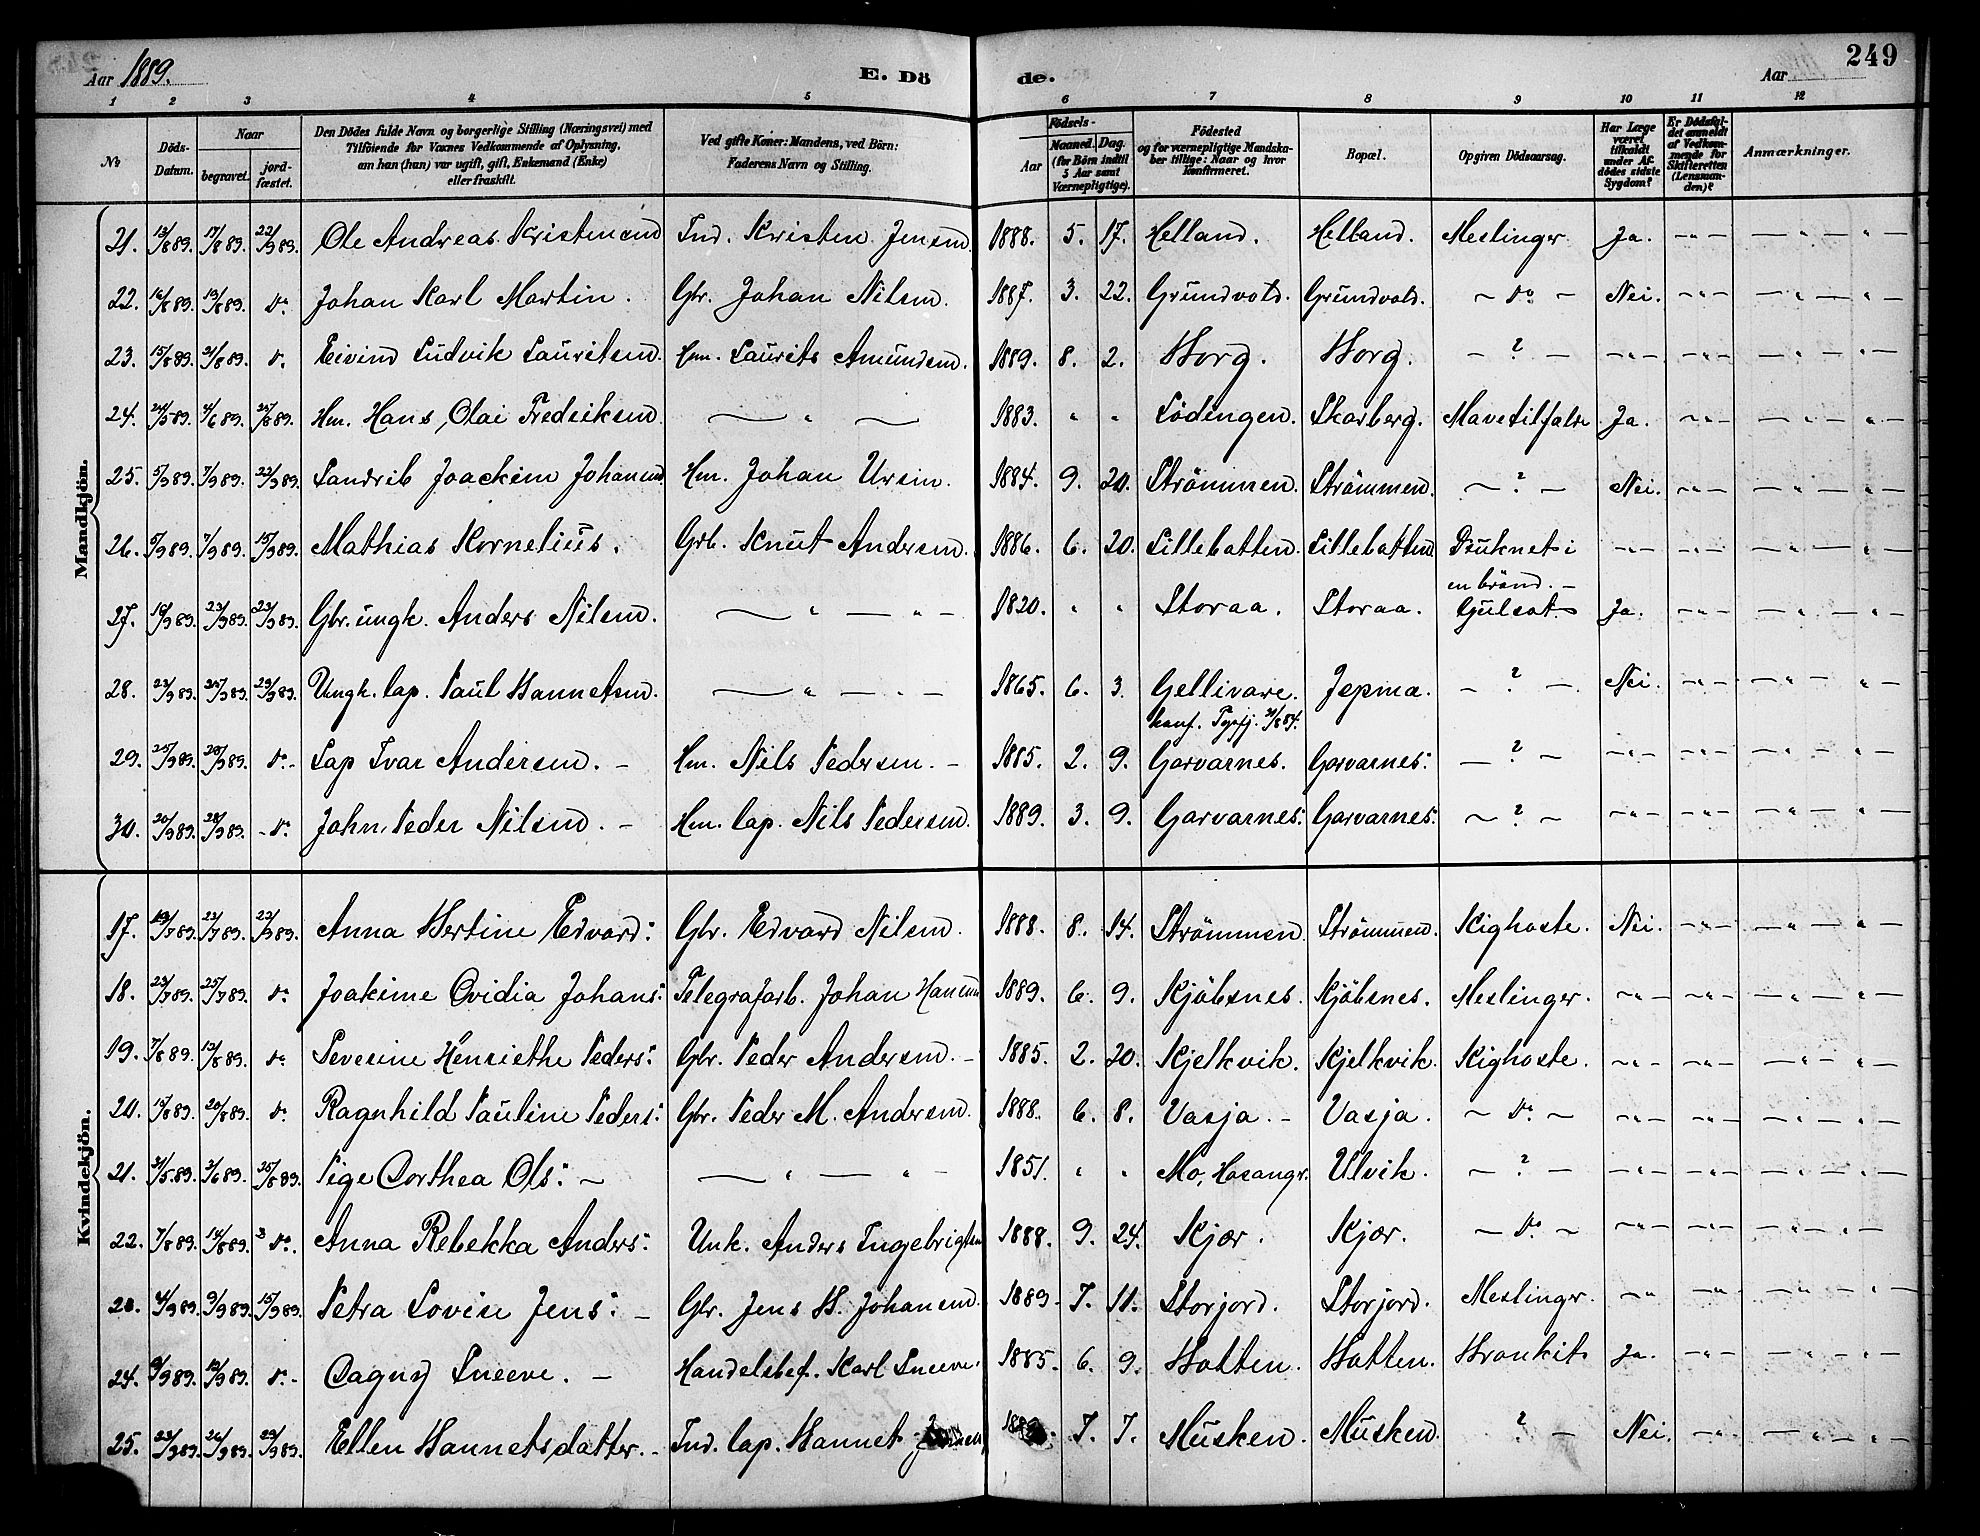 Aar 1889. E. Dö de. Aar 249
1 2 3 4 5 6 7 8 9 10 11 12
№ Döds-Datum. Naar begravet. jordfæstet. Den Dödes fulde Navn og borgerlige Stilling (Næringsvei) med Tilföiende for Voxnes Vedkommende af Oplysning, om han (hun) var ugift, gift, Enkemand (Enke) eller fraskilt. Ved gifte Koner: Mandens, ved Börn: Faderens Navn og Stilling. Födsels- Aar Maaned. Dag. (for Börn indtil 5 Aar samt Værnepligtige). Födested og for værnepligtige Mandskaber tillige: Naar og hvor konfirmeret. Bopæl. Opgiven Dödsaarsag. Har Læge været tilkaldt under Afdödes sidste Sygdom? Er Dödsfaldet anmeldt af Vedkommende for Skifteretten (Lensmanden)? Anmærkninger.
Mandkjön.
21. 13/8 89. 17/8 89. 22/9 89. Ole Andreas Kristensen Ind. Kristen Jensen. 1888. 5. 17. Helland. Helland. Meslinger Ja. -"- - " - " -
22. 16/8 89. 19/8 89. do. Johan Karl Martin. Gbr. Johan Nilsen. 1887. 3. 22. Grundvold. Grundvold. - do - Nei. -"- - " - " -
23. 15/8 89. 21/8 89. do. Eivind Ludvik Lauritsen. Hm. Laurits Amundsen. 1889. 8. 2. Horg. Horg. - ? - -"- -"- - " - " -
24. 24/5 89. 4/6 89. 25/8 89. Hm. Hans Olai Fredriksen. - " - 1883. " " Lödingen. Skarberg. Mavetilfælde Ja. -"- - " - " -
25. 5/9 89. 7/9 89. 22/9 89. Sandrib Joackim Johansen Hm. Johan Ursin. 1884. 9. 20. Strömmen. Strömmen. - ? - Nei. -"- - " - " -
26. 5/9 89. 7/9 89. 15/9 89. Mathias Kornelius. Grb. Knut Andersen. 1886. 6. 20. Lillebatten. Lillebatten Druknet i en brönd. - -"- -"- - " - " -
27. 19/9 89. 23/9 89. 23/9 89. Gbr. ungk. Anders Nilsen. - " - " - 1820. " " Storaa. Storaa. Gulsot. Ja. -"- - " - " -
28. 23/9 89. 25/9 89. 29/9 89. Ungk. lap. Paul Hannetsen. - " - " - 1865. 6. 3. Gellivare. konf. Tysfj. 31/8 84. Jepma. - ? - Nei. -"- - " - " -
29. 25/9 89. 28/9 89. do. - Lap Ivar Andersen. - Hm. Nils Pedersen. - 1885. 2. 9. Garvarnes. Garvarnes: - ? - -"- -"- - " - " -
30. 20/9 89. 28/9 89. - do. John Peder Nilsen. - Hm. lap. Nils Pedersen. 1889. 3. 9. Garvarnes: Garvarnes: - ? - -"- -"- - " - " -
Kvindekjön.
17. 19/7 89. 23/7 89. 22/9 89. Anna Hertine Edvard: Gbr. Edvard Nilsen. 1888. 8. 14. Strömmen. Strömmen. Kighoste. Nei. -"- - " - " -
18. 23/7 89. 25/7 89. do. Joakime Ovidia Johans: Telegrafarb. Johan Hansen 1889. 6. 9. Kjöbsnes. Kjöbsnes. Meslinger. -"- -"- - " - " -
19. 7/8 89. 13/8 89. do. Severine Henriethe Peders: Gbr. Peder Andersen. - 1885. 2. 20. Kjelkvik. Kjelkvik. Kighoste. -"- -"- - " - " -
20. 15/8 89. 20/8 89. do. Ragnhild Pauline Peders: Gbr. Peder M. Andersen. 1888. 6. 8. Vasja. - Vasja. - do - -"- -"- - " - " -
21. 31/5 89. 3/6 89. 25/8 89. Pige Dorthea Ols: - - " - " - 1851. " " Mo, Ulvik. - ? - -"- -"- - " - " -
22. 7/8 89. 14/8 89. do. Anna Rebekka Anders: Unk. Anders Ingebrigtsen 1888. 9. 24. Kjær. Kjær. - do - -"- -"- - " - " -
4/9 89. 9/9 89. 15/9 89. Petra Lovise Jens: - Gbr. Jens H. Johansen 1889. 7. 11. Storjord. Storjord. Meslinger. -"- -"- - " - " -
24. 13/9 89. do. - Dagny Sneeve. - Handelsbet. Karl Sneeve. 1885. 6. 9. Hatten. Hatten. Bronkit. Ja. -"- - " - " -
25. 23/9 89. 26/9 89. 29/9 89. Ellen Hannetsdatter. - Ind. lap. Hannet 7. 7. Musken. Musken. ? - Nei. -"- - " - " -